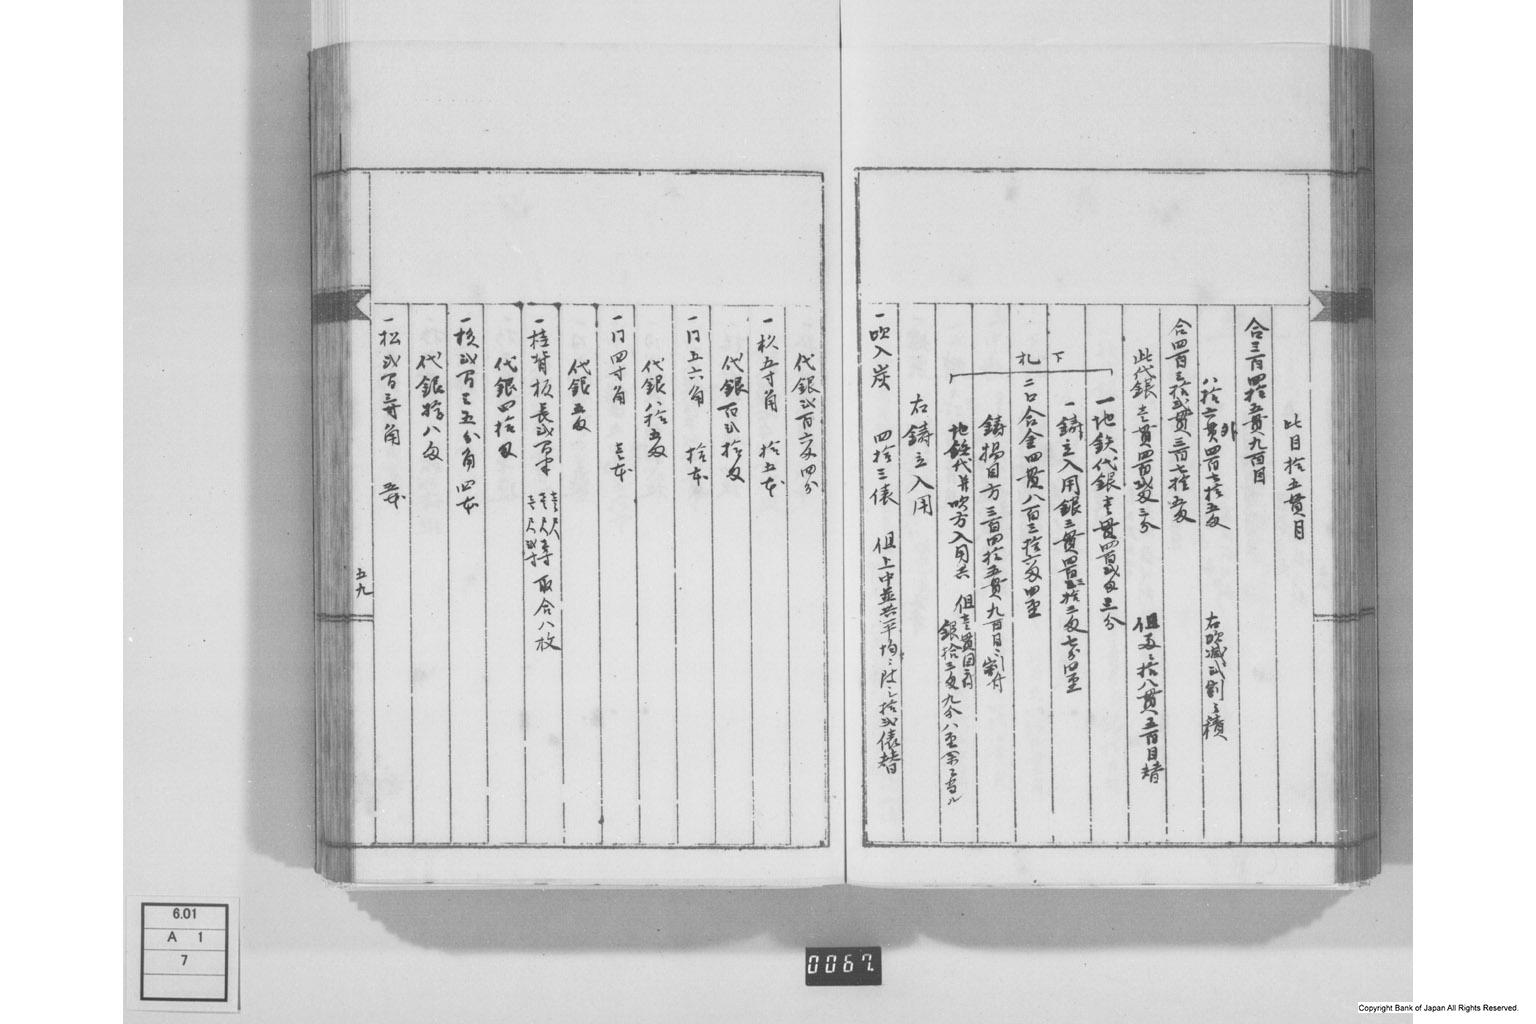 此目拾五貫目
合三百四拾五貫九百目
外
八拾六貫四百七拾五匁 右吹減弐割之積
合四百三拾弐貫三百七拾五匁
此代銀壱貫四百弐匁三分 但 拾八貫五百目替
一地鉄代銀壱貫四百弐匁三分
一鋳立入用銀三貫四百三拾三匁七分四厘
下
札
二口合金四貫八百三拾六匁四厘
鋳揚目方三百四拾五貫九百目ニ割付
地鉄代并吹方入用共 但壱貫目ニ付
銀拾三匁九分八厘余ニ当ル
右鋳立入用
一吹入炭 四拾三俵 但上中並共平均 拾弐俵替
代銀弐百六匁四分
一杉五寸角 拾五本
代銀百弐拾匁
一同五六角 拾本
代銀八拾五匁
一同四寸角 壱本
代銀五匁
一桂背板長弐間半 取合八枚
代銀四拾匁
一杉弐間三五分角四本
代銀拾八匁
一松弐間三寸角 五本
五九
6.01
A 1
7
0067
Copyright Bank of Japan All Rights Reserved.